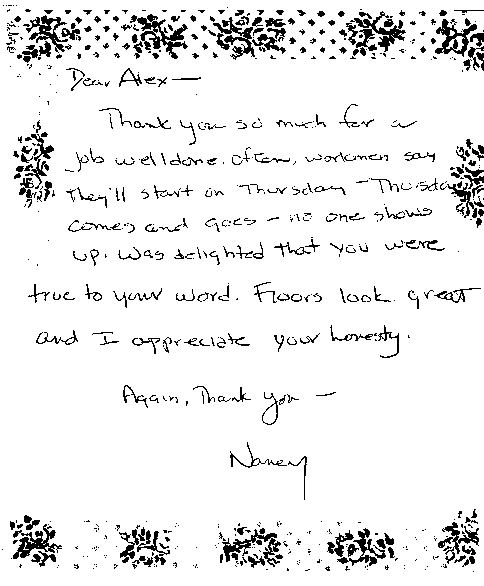 Dear Alex —
Thank you so much for a
job well done. Often, workmen say
they'll start on Thursday — Thursday
comes and goes — no one shows
up. Was delighted that you were
true to your word. Floors look great
and I appreciate your honesty.
Again, Thank you —
Nancy